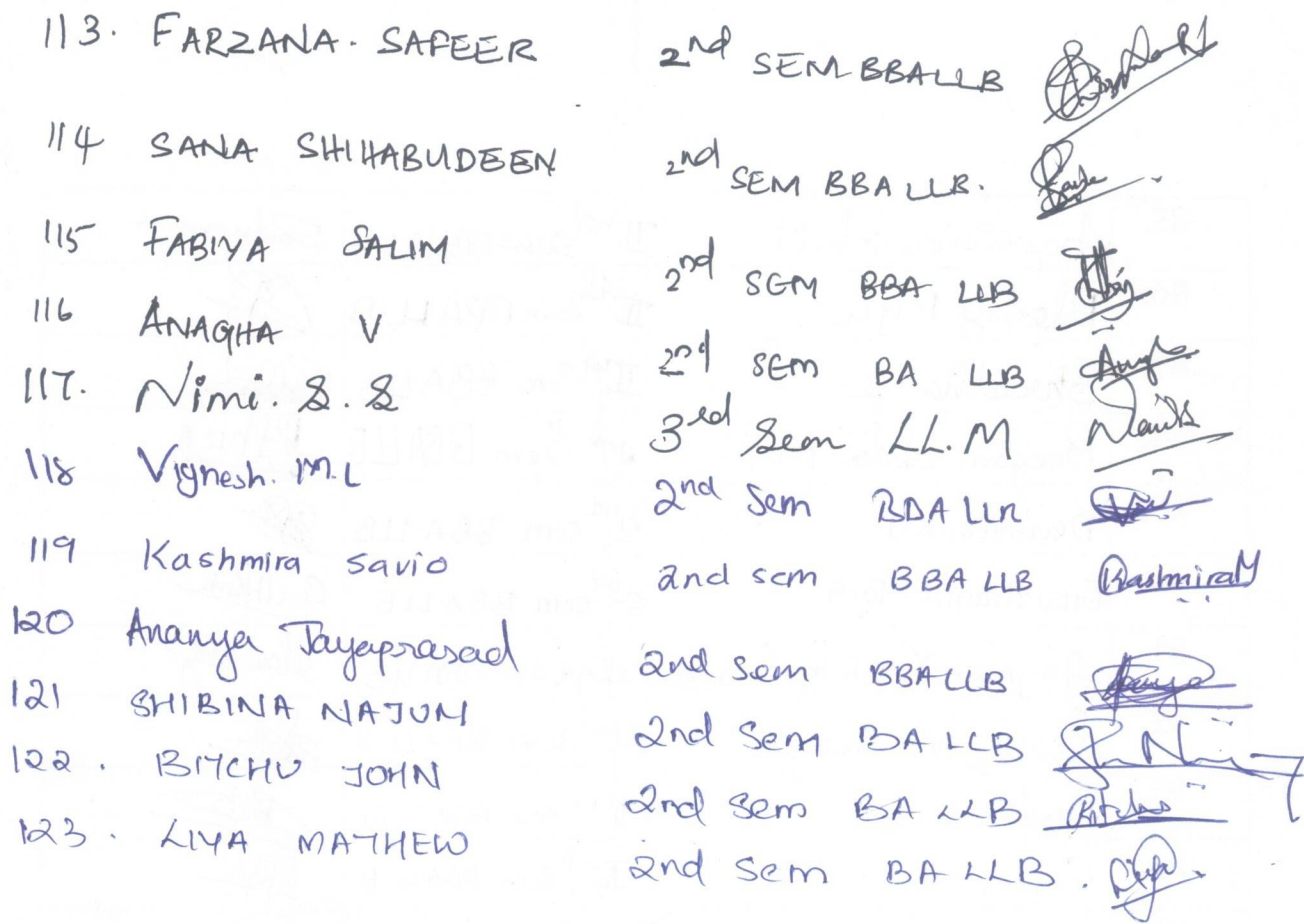 113. FARZANA. SAFEER 2nd SEM BBALLB
114 SANA SHIHABUDEEN 2nd SEM BBA LLB.
115 FABIYA SALIM 2nd SEM BBA LLB
116 ANAGHA V 2nd SEM BA LLB
117. Nimi. S. S 3rd Sem LL.M
118 Vignesh. M.L 2nd Sem BBA LLB
119 Kashmira Savio 2nd sem BBA LLB Kashmira
120 Ananya Jayaprasad 2nd Sem BBALLB
121 SHIBINA NAJUM 2nd Sem BA LLB
122. BITCHU JOHN 2nd Sem BA LLB
123. LIYA MATHEW 2nd Sem BA LLB.